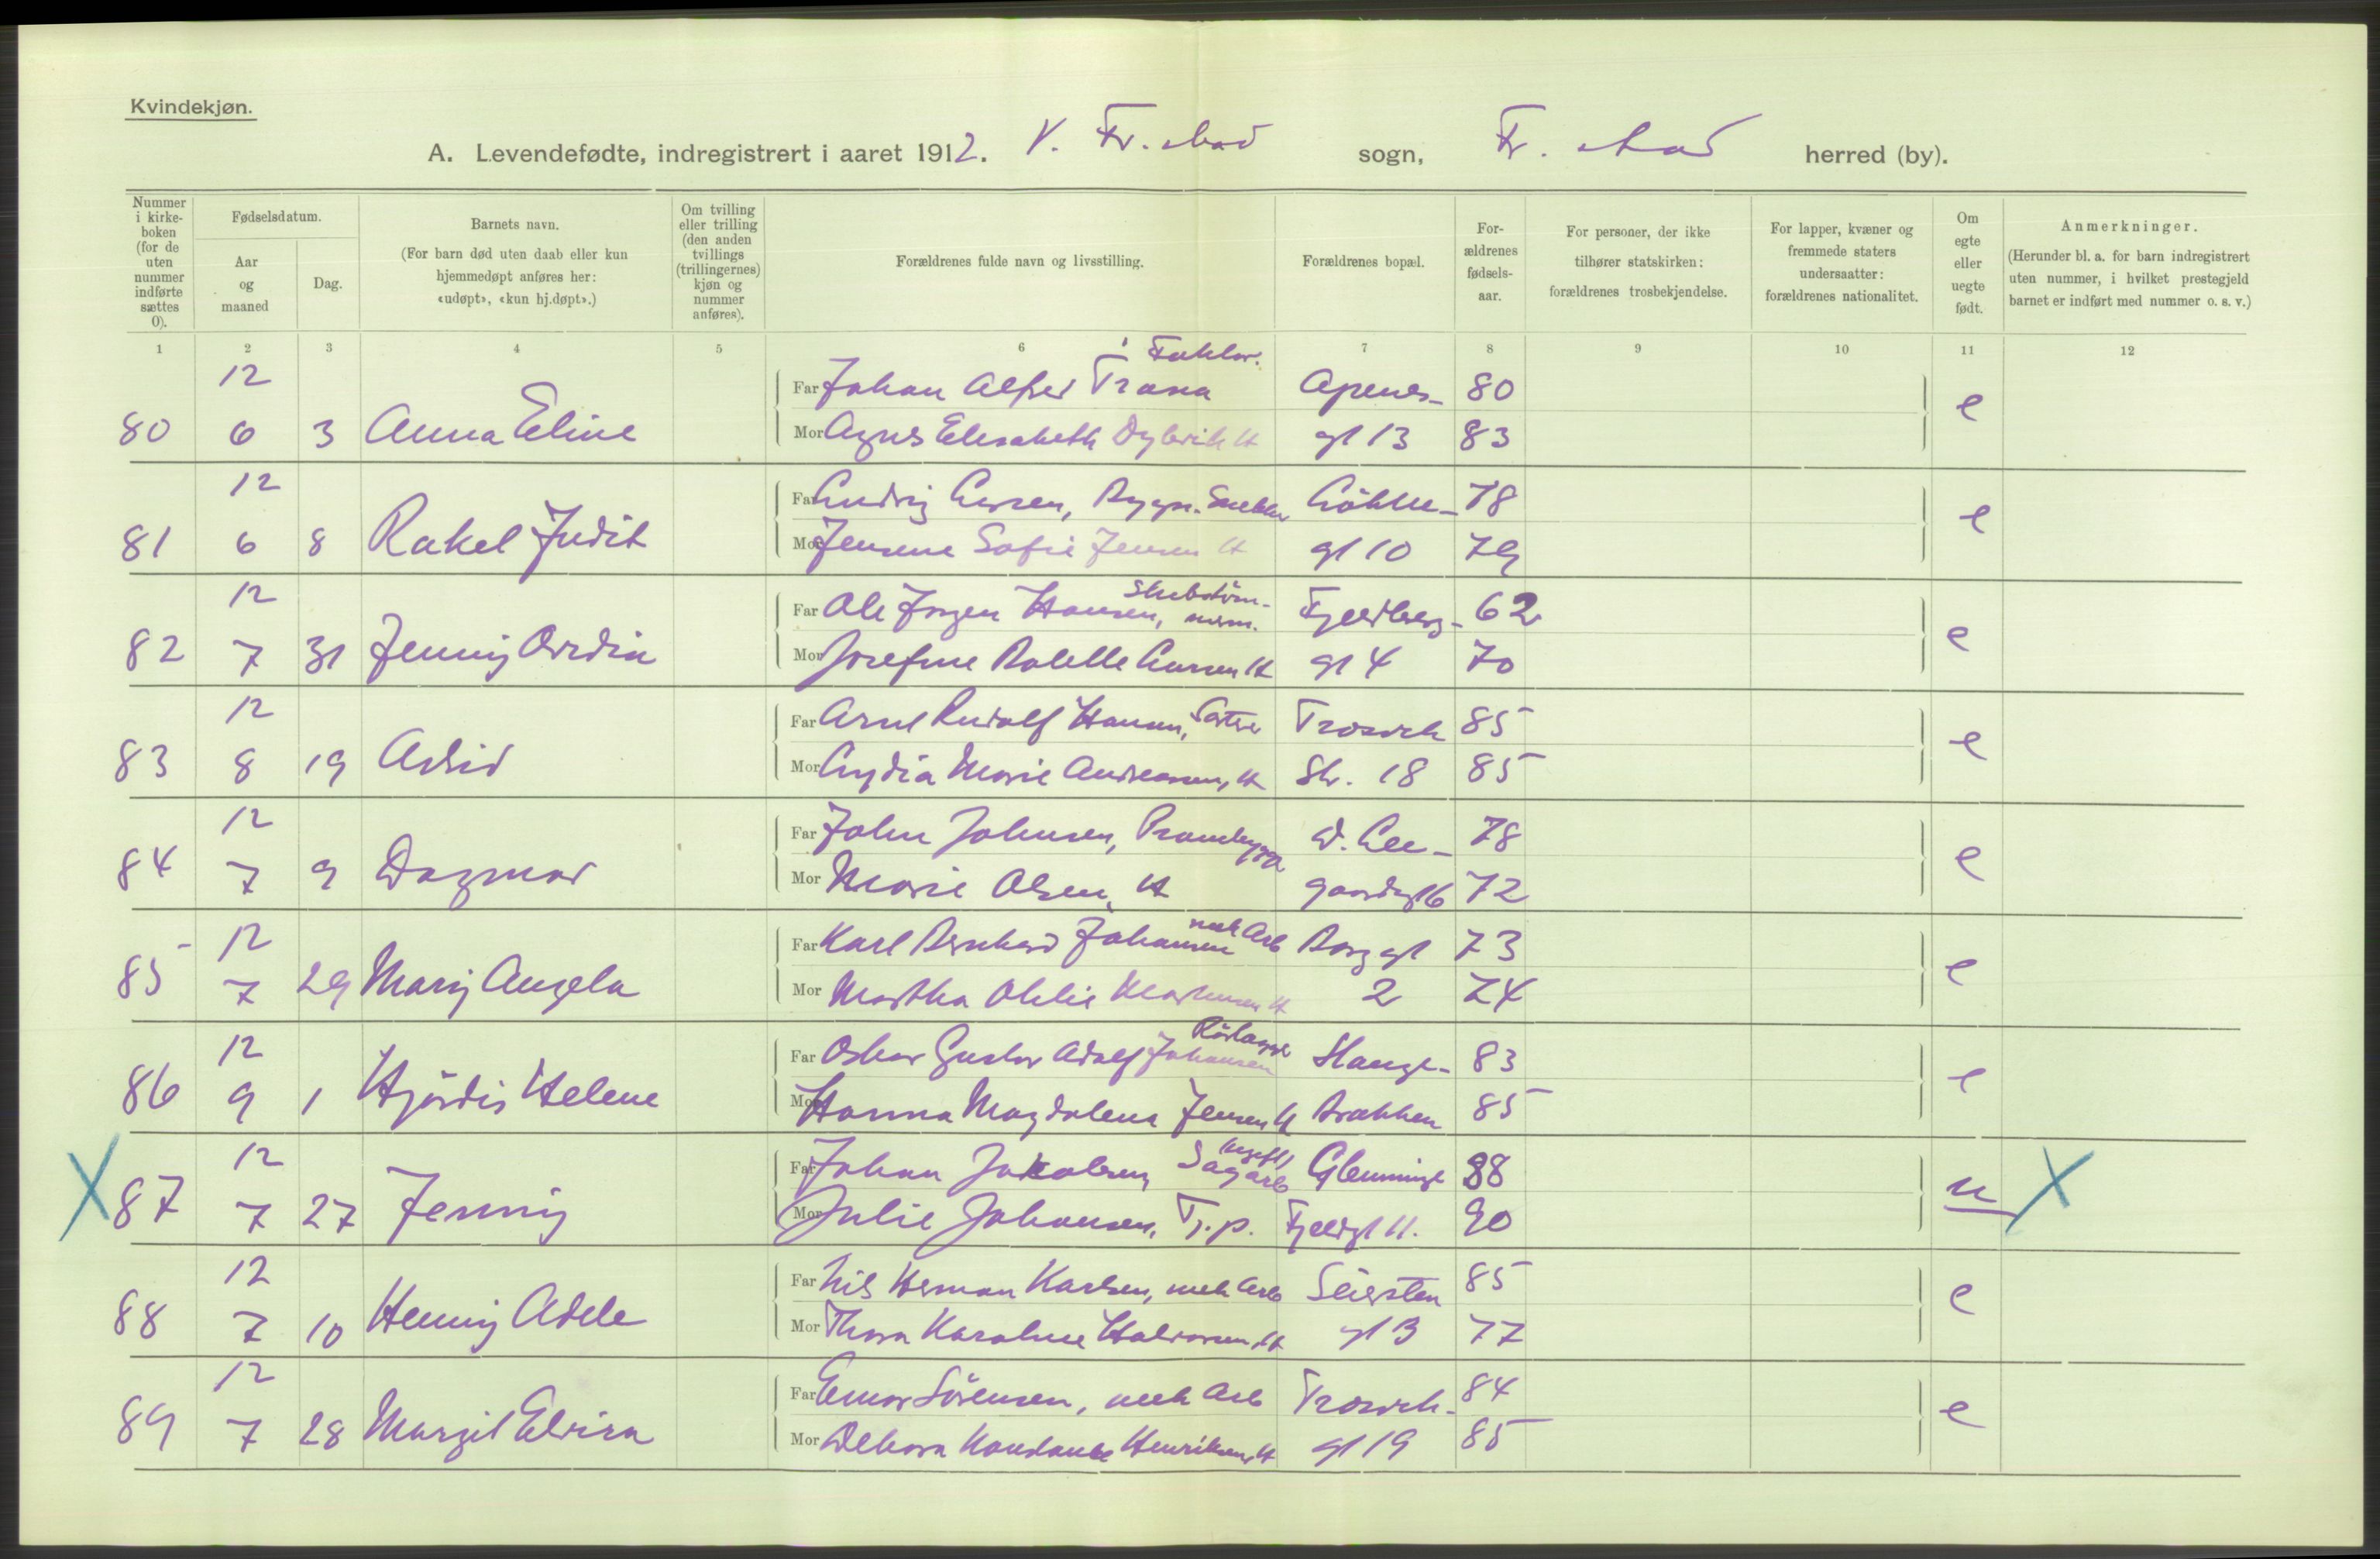 Kvindekjøn.
A. Levendefødte, indregistrert i aaret 1912. V. Fr.stad sogn, Fr.stad herred (by).
Nummer i kirkeboken (for de uten nummer indførte sættes 0).
Fødselsdatum.
Aar og maaned
Dag.
Barnets navn.
(For barn død uten daab eller kun hjemmedøpt anføres her: «udøpt», «kun hj.døpt».)
Om tvilling eller trilling (den anden tvillings (trillingernes) kjøn og nummer anføres).
Forældrenes fulde navn og livsstilling.
Forældrenes bopæl.
Forældrenes fødselsaar.
For personer, der ikke tilhører statskirken: forældrenes trosbekjendelse.
For lapper, kvæner og fremmede staters undersaatter: forældrenes nationalitet.
Om egte eller uegte født.
Anmerkninger.
(Herunder bl. a. for barn indregistrert uten nummer, i hvilket prestegjeld barnet er indført med nummer o. s. v.)
1 2 3 4 5 6 7 8 9 10 11 12
12 Far Johan Alfred Trana Apenes- 80 e
80 6 3 Anna Eline Mor Agnes Elisabeth gt 13 83
12 Far Ludvig Larsen, Bygn. Snekker Løkke- 78 e
81 6 8 Rakel Judit Mor Jensine Sofie Jensen H gt 10 79
12 Far Ole Jørgen Hansen, Fjeldberg- 62 e
82 7 31 Jenny Ordin Mor Josefine Larsen H gt 4 70
12 Far Arne Rudolf Hansen, Trosvik 85 e
83 8 19 Mor Lydia Marie Andreassen, H Str. 18 85
12 Far John Johnsen, Prambygger 78 e
84 7 9 Dagmar Mor Marie Olsen, H gaardsgt 6 72
12 Far Karl Bernhard Johansen mek Arb Borggt 73 e
85 7 29 Mary Angela Mor Martha Otilie H 2 74
12 Far Oskar Gustav Adolf Johansen Rørlægger Hauge- 83 e
86 9 1 Hjørdis Helene Mor Hanna Magdalena Jensen H Brækken 85
12 Far Johan Jakobsen, Sagarb (ugift) Glemminge 88 u X
X 87 7 27 Jenny Mor Julie Johansen, Tj.p. Fjeldgt 11. 90
12 Far Nils Herman Karlsen, mek Arb Seiersten 85 e
88 7 10 Henny Adele Mor Thora Karoline Halvorsen, H gt 3 77
12 Far Einar Sørensen, mek Arb Trosvik- 84 e
89 7 28 Margit Elvira Mor Debora Konstanse Henriksen, H gt 19 85